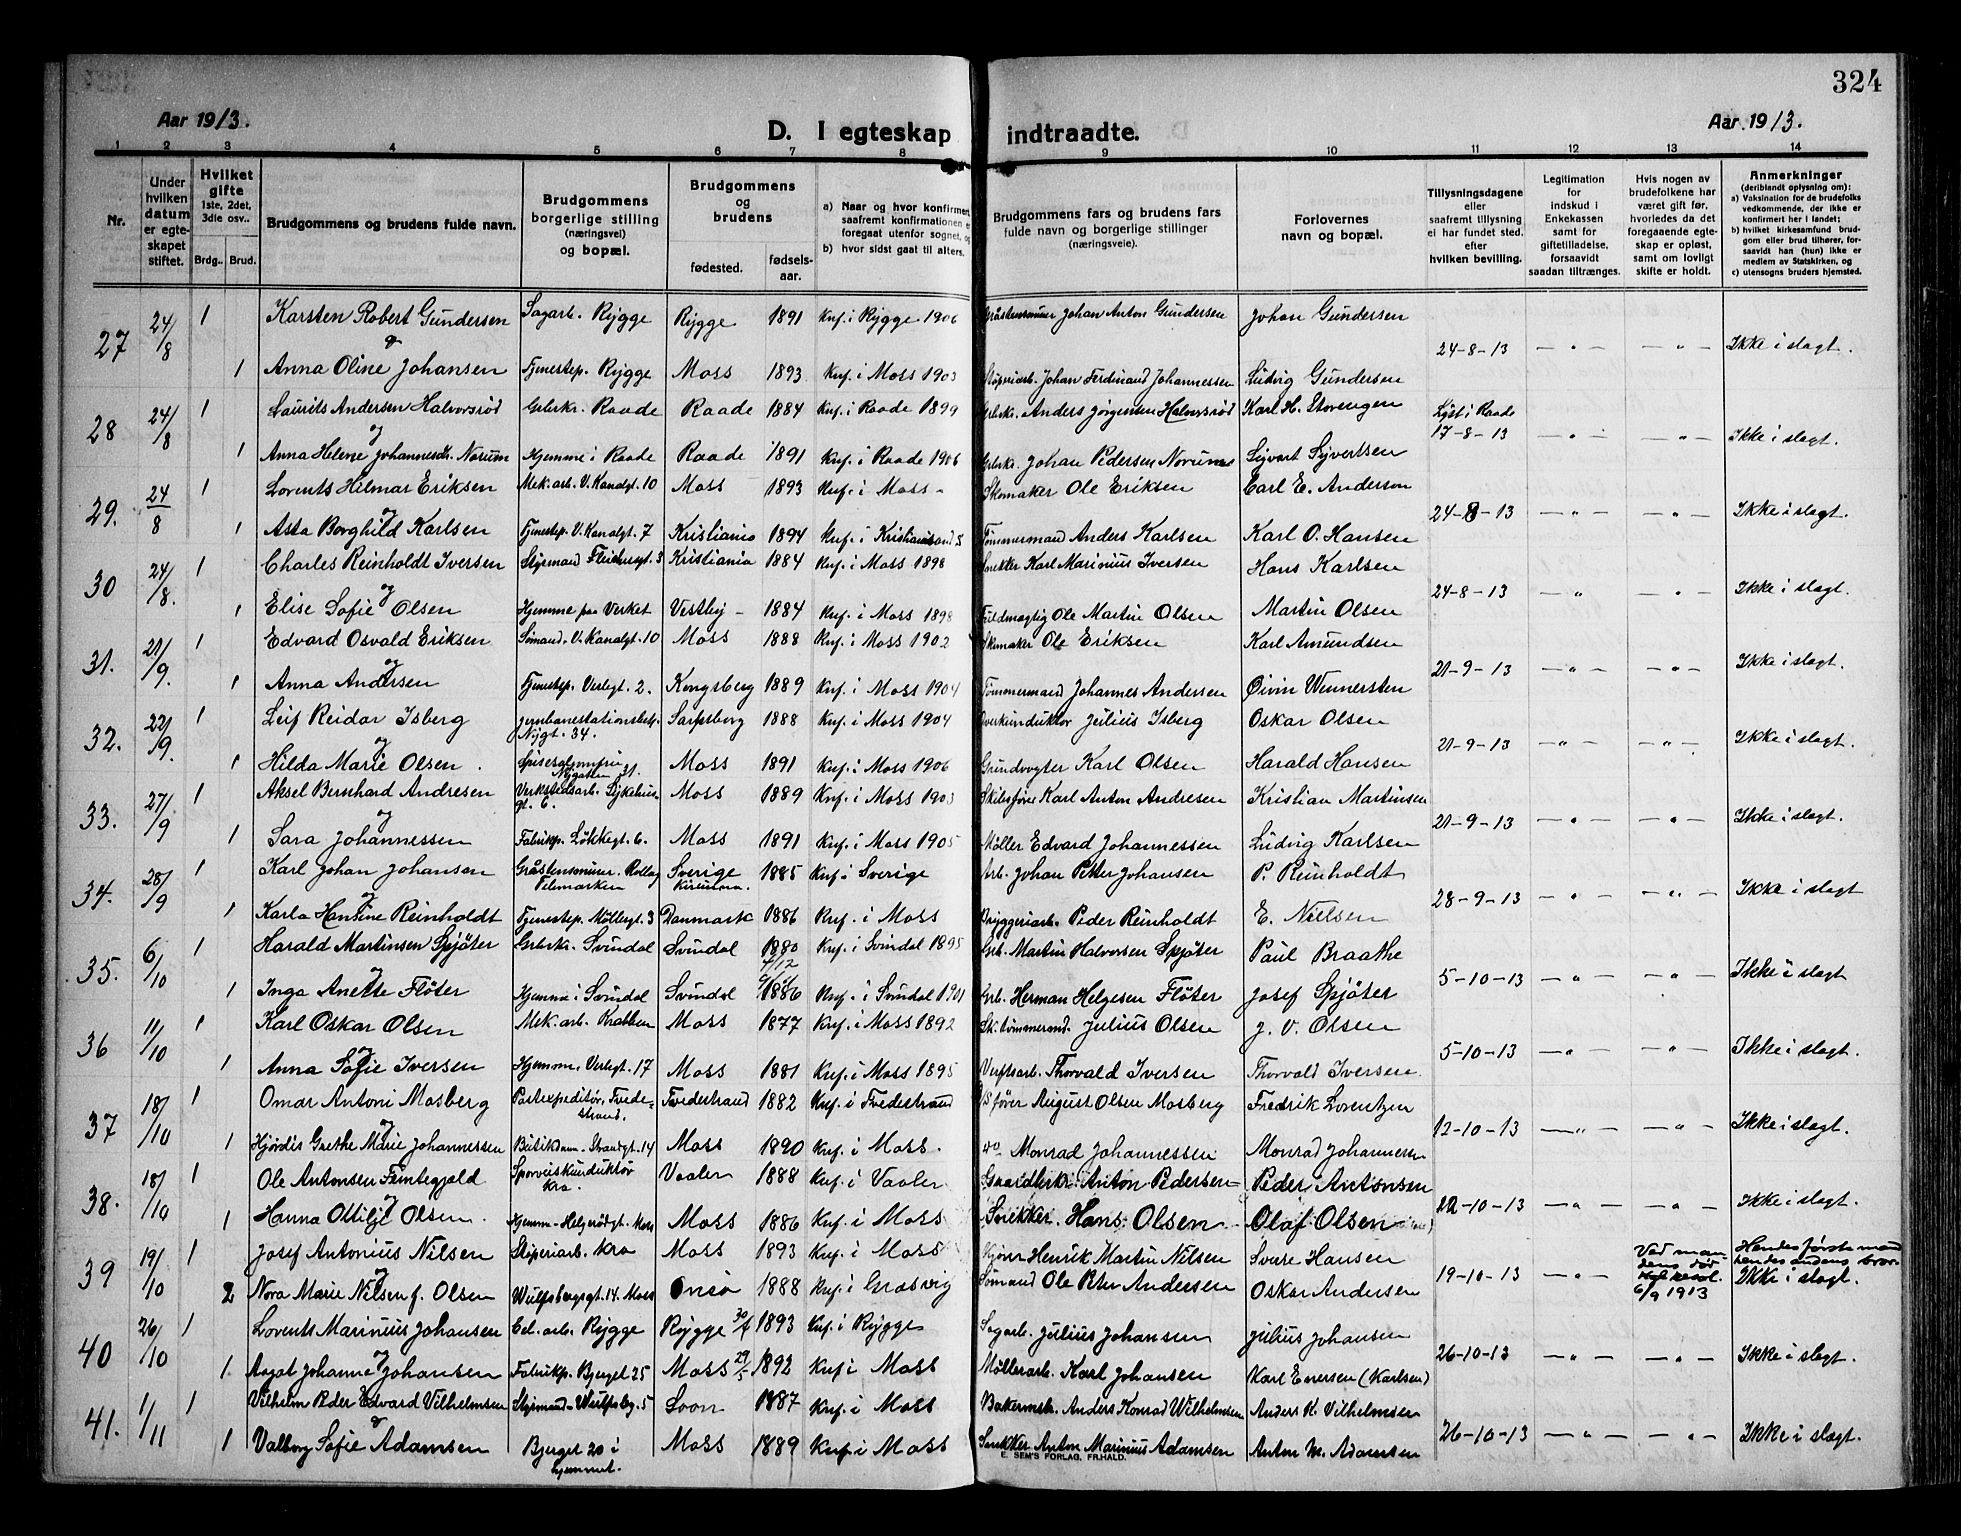 324
Aar 1913.
D. I egteskap indtraadte.
Aar 1913.
1 2 3 4 5 6 7 8 9 10 11 12 13 14
Nr.
Under hvilken datum er egteskapet stiftet.
Hvilket gifte 1ste, 2det, 3die osv..
Brdg.. Brud.
Brudgommens og brudens fulde navn.
Brudgommens borgerlige stilling (næringsvei) og bopæl.
Brudgommens og brudens
fødested.
fødsels-aar.
a) Naar og hvor konfirmert, saafremt konfirmationen er foregaat utenfor sognet, og
b) hvor sidst gaat til alters.
Brudgommens fars og brudens fars fulde navn og borgerlige stillinger (næringsveie).
Forlovernes navn og bopæl.
Tillysningsdagene eller saafremt tillysning ei har fundet sted, efter hvilken bevilling.
Legitimation for indskud i Enkekassen samt for giftetilladelse, forsaavidt saadan tiltrænges.
Hvis nogen av brudefolkene har været gift før, hvorledes da det foregaaende egteskap er opløst, samt om lovligt skifte er holdt.
Anmerkninger (deriblandt oplysning om): a) Vaksination for de brudefolks vedkommende, der ikke er konfirmert her i landet; b) hvilket kirkesamfund brudgom eller brud tilhører, forsaavidt han (hun) ikke er medlem av Statskirken, og c) utensogns bruders hjemsted.
27 24/8 1 Karsten Robert Gundersen Sagarb. Rygge Rygge 1891 Knf. i Rygge 1906 Gråstensminer Johan Anton Gundersen Johan Gundersen
24-8-13 — " — — " — Ikke i slagt.
1 Anna Oline Johansen Tjenestep. Rygge Moss 1893 Knf. i Moss 1903 Støperiarb. Johan Ferdinand Johannessen Ludvig Gundersen
28 24/8 1 Laurits Andersen Halvorsrød Grbrkr. Raade Raade 1884 Knf. i Raade 1899 Grbrkr. Anders Jørgensen Halvorsrød Karl H. Storengen
og Lyst i Raade 17-8-13 — " — — " — Ikke i slagt.
1 Anna Helene Johannesdt. Norum Hjemme i Raade Raade 1891 Knf. i Raade 1906 Grbrkr. Johan Pedersen Norum Sijvert Sijvertsen
29. 24/8 1 Lorents Hilmar Eriksen Mek. arb. V. Kanalgt. 10 Moss 1893 Knf. i Moss - Skomaker Ole Eriksen Carl E. Anderson
og 24-8-13 — " — — " — Ikke i slagt.
1 Asta Borghild Karlsen Tjenestep. V. Kanalgt. 7 Kristiania 1894 Knf. i Kristiansand S Tømmermand Anders Karlsen Karl O. Hansen
30 24/8. 1 Charles Reinholdt Iversen Styrmand 3 Kristiania 1884 Knf. i Moss 1898 Snekker Karl Marinius Iversen Hans Karlsen
og 24-8-13 — " — — " — Ikke i slagt.
1 Elise Sofie Olsen Hjemme paa Verket Vestby - 1884 Knf. i Moss 1898 Fuldmægtig Ole Martin Olsen Martin Olsen
31. 21/9. 1 Edvard Osvald Eriksen Sømand. V. Kanalgt. 10 Moss 1888 Knf. i Moss 1902 Skomaker Ole Eriksen Karl Amundsen
og 21-9-13 — " — — " — Ikke i slagt.
1 Anna Andersen Tjenestep. Verlegt. 2. Kongsberg 1889 Knf. i Moss 1904 Tømmermand Johannes Andersen Øivin Wennersten
32. 22/9. 1 Leif Reidar Isberg Jernbanestationsbetj. Nygt. 34. Sarpsborg 1888 Knf. i Moss 1904 Overkonduktør Julius Isberg Oskar Olsen
og 21-9-13 — " — — " — Ikke i slagt.
1 Hilda Marie Olsen. Nygaten 31. Moss 1891 Knf. i Moss 1906 Karl Olsen Harald Hansen
33. 27/9 1 Aksel Bernhard Andresen Verkstedsarb. Sykehusgt. 6. Moss 1889 Knf. i Moss 1903 Skibsfører Karl Anton Andresen Kristian Martinsen
og 21-9-13 — " — — " — Ikke i slagt.
1 Sara Johannessen Fabrikp. Løkkegt. 6. Moss 1891 Knf. i Moss 1905 Møller Edvard Johannessen Ludvig Karlsen
34. 28/9 1 Karl Johan Johansen Gråstensminer. Rollag Telemarken Sverige 1885 Knf. i Sverige Arb. Johan Petter Johansen P. Reinholdt
og 28-9-13 — " — — " — Ikke i slagt
1 Karla Hansine Reinholdt Tjenestep. Møllegt. 3 Danmark 1886 Knf. i Moss Bryggeriarb. Peder Reinholdt E. Nielsen
35. 6/10 1 Harald Martinsen Spjøter Grbrkr. Svindal Svindal 1880 4/12 Knf. i Svindal 1895 Grb. Martin Halvorsen Spjøter Paul Braathe
og 5-10-13 — " — — " — Ikke i slagt
1 Inga Anette Fløter Hjemme i Svindal Svindal 1886 Knf. i Svindal 1901 Grb. Herman Helgesen Fløter Josef Spjøter
36 11/10 1 Karl Oskar Olsen Mek. arb. Krabben Moss 1877 Knf. i Moss 1892 Sk. tømmermd. Julius Olsen J. V. Olsen
og 5-10-13 — " — — " — Ikke i slagt.
1 Anna Sofie Iversen Hjemme. Verlegt. 17 Moss 1881 Knf. i Moss 1895 Verftsarb. Thorvald Iversen Thorvald Iversen
37 18/10 1 Omar Antoni Mosberg Postexpeditør, Tvedestrand. Tvedestrand 1882 Knf. i Tvedestrand fører August Olsen Mosberg Fredrik Lorentzen
og 12-10-13 — " — — " — Ikke i slagt.
1 Hjørdis Grethe Marie Johannessen Butikdam. Strandgt. 14 Moss 1890 Knf. i Moss. Monrad Johannessen Monrad Johannessen
38. 18/10 1 Ole Antonsen Femtegjeld Sporveiskonduktør Kra. Vaaler 1888 Knf. i Vaaler Gaardbrk. Anton Pedersen Peder Antonsen
og 12-10-13 — " — — " — Ikke i slagt.
1 Hanna Ottilje Olsen. Hjemme - Helgerødgt. Moss Moss 1886 Knf. i Moss Snekker. Hans Olsen Olaf Olsen
39 19/10 1 Josef Antonius Nilsen Støperiarb. Kra Moss 1893 Knf. i Moss Henrik Martin Nilsen Sverre Hansen
og 19-10-13 — " — Ved mandens død 6/9 1913 Hendes første mand hendes andens bror Ikke i slagt.
2 Nora Marie Nilsen f. Olsen Wulfsbergsgt. 14. Moss Onsø 1888 Knf. i Græsvig Sømand Ole Peter Andersen Oskar Andersen
40 26/10 1 Lorents Marinius Johansen Cel. arb. Rygge Rygge 1893 Knf. i Rygge Sagarb. Julius Johansen Julius Johansen
og 26-10-13 — " — — " — Ikke i slagt.
1 Aagot Johanne Johansen Fabrikp. Bjerget 25 Moss 29/5 1892 Knf i Moss Møllerarb. Karl Johansen Karl Enersen (Karlsen)
41. 1/11 1 Vilhelm Peder Edvard Vilhelmsen Styrmand - Wulfsbg. 5 Soon 1887 Knf. i Moss Bakermstr. Anders Konrad Wilhelmsen Anders K. Vilhelmsen
og 26-10-13 — " — — " — Ikke i slagt.
1 Valborg Sofie Adamsen Bjerget 20 i hjemmet. Moss 1889 Knf i Moss Snekker Anton Marinius Adamsen Anton M. Adamsen
E. SEM'S FORLAG, FR.HALD.